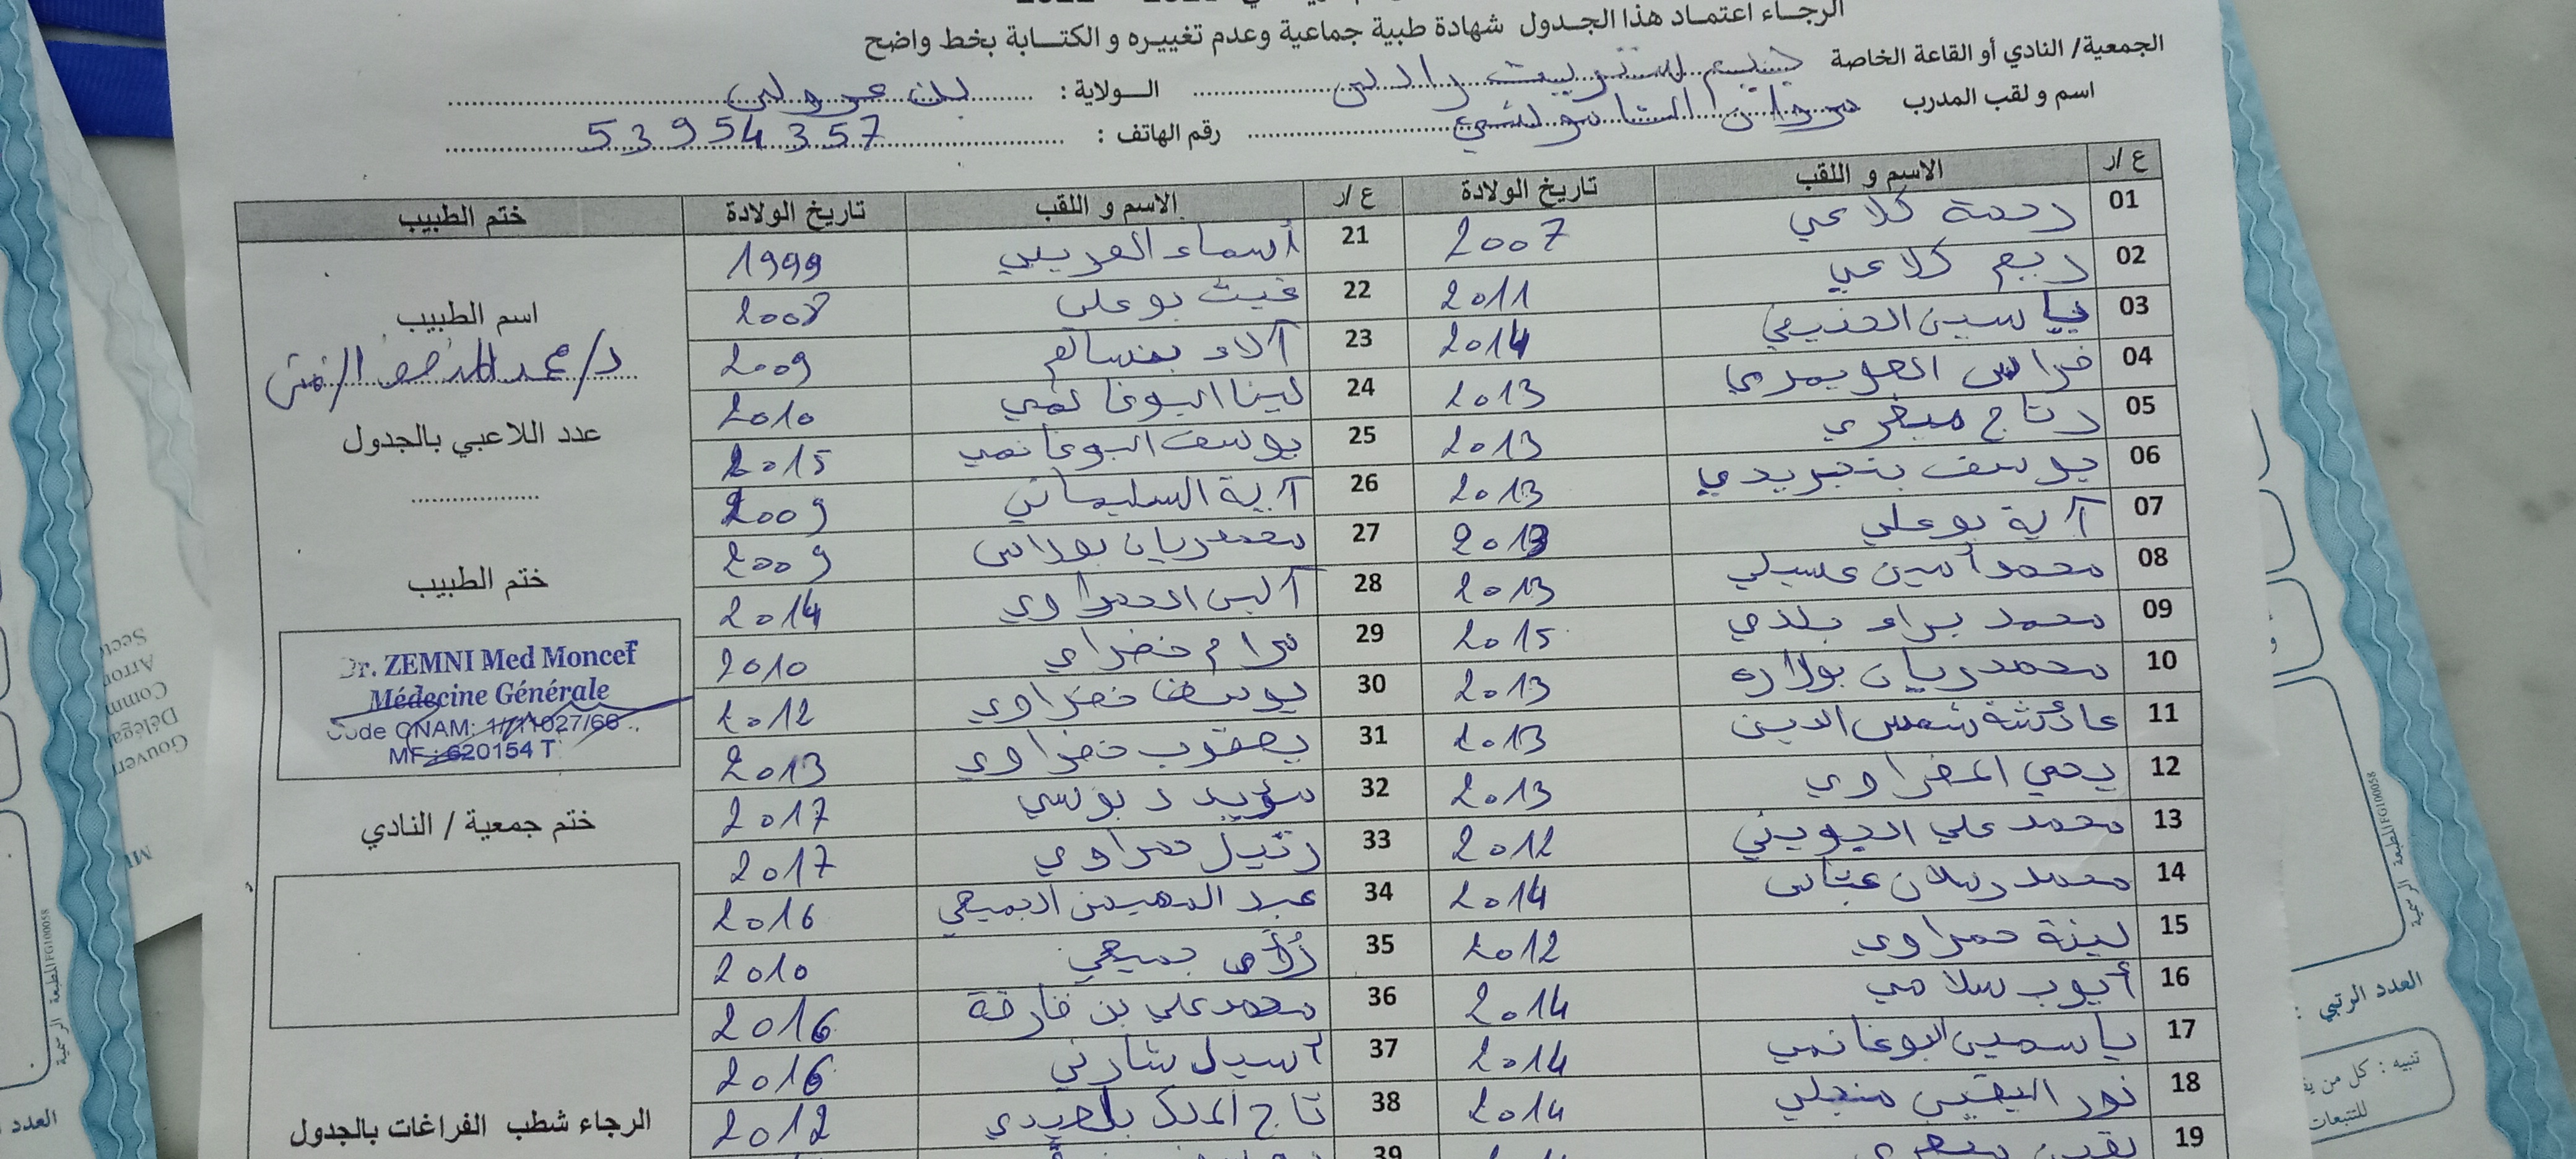 الرجاء اعتماد هذا الجدول شهادة طبية جماعية وعدم تغييره و الكتابة بخط واضح
الجمعية/ النادي أو القاعة الخاصة
الولاية : بن عروس
اسم و لقب المدرب مروان
رقم الهاتف : 53954357
ع /ر الاسم و اللقب تاريخ الولادة ع /ر الاسم و اللقب تاريخ الولادة ختم الطبيب
01 رحمة كلاعي 2007 21 أسماء العريبي 1999
02 ربيع كلاعي 2011 22 غيث بوعلي 2008
03 ياسين الحنيفي 2014 23 آلاء بنسالم 2009
04 فراس العويمري 2013 24 لينا البوغانمي 2010
05 رتاج صغري 2013 25 يوسف البوغانمي 2015
06 يوسف بنجريدي 2013 26 آية السليماني 2009
07 آية بوعلي 2013 27 محمد ريان بوراس 2009
08 محمد أمين عسيلي 2013 28 آلين الحمراوي 2014
09 محمد براء بلدي 2015 29 مرام خضراي 2010
10 محمد ريان بولاره 2013 30 يوسف خضراوي 2012
11 عائشة شمس الدين 2013 31 يعقوب خضراوي 2013
12 يحي الخضراوي 2013 32 مؤيد دبوسي 2017
13 محمد علي الجويني 2012 33 رتيل حمراوي 2017
14 محمد رسلان عتابي 2014 34 عبد المهيمن الجميعي 2016
15 لينة حمراوي 2012 35 جميعي 2010
16 أيوب سلامي 2014 36 محمد علي بن فارقة 2016
17 ياسمين البوغانمي 2014 37 أسيل شارني 2016
18 نور اليقين منجلي 2014 38 تاج الملك بلعيدي 2012
19
39
اسم الطبيب
د/ محمد المنصف الزمني
عدد اللاعبي بالجدول
ختم الطبيب
Dr. ZEMNI Med Moncef
Médecine Générale
Code CNAM: 1/11027/66
MF : 620154 T
ختم جمعية / النادي
الرجاء شطب الفراغات بالجدول
المطبعة الرسمية FG100058
العدد الرتبي :
تنبيه : كل من
للتتبعات
العدد
المطبعة الرسمية FG100058
Gouver
Déléga
Comm
Arron
Sect